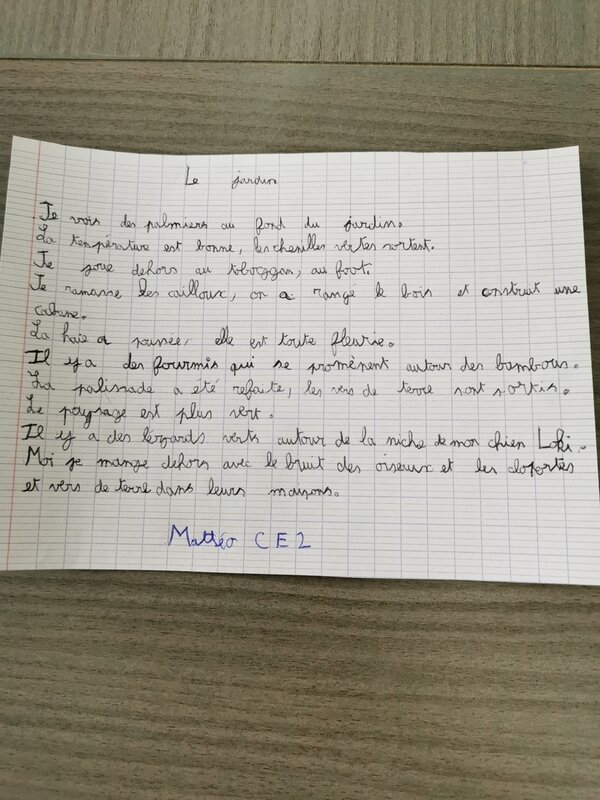 Le jardin
Je vois des palmiers au fond du jardin.
La température est bonne, les chenilles vertes sortent.
Je joue dehors au toboggan, au foot.
Je ramasse les cailloux, on a rangé le bois et construit une
cabane.
La haie a poussée, elle est toute fleurie.
Il y a des fourmis qui se promènent autour des bambous.
La palissade a été refaite, les vers de terre sont sortis.
Le paysage est plus vert.
Il y a des lézards verts autour de la niche de mon chien Loki.
Moi je mange dehors avec le bruit des oiseaux et les cloportes
et vers de terre dans leurs maisons.
Mattéo CE2